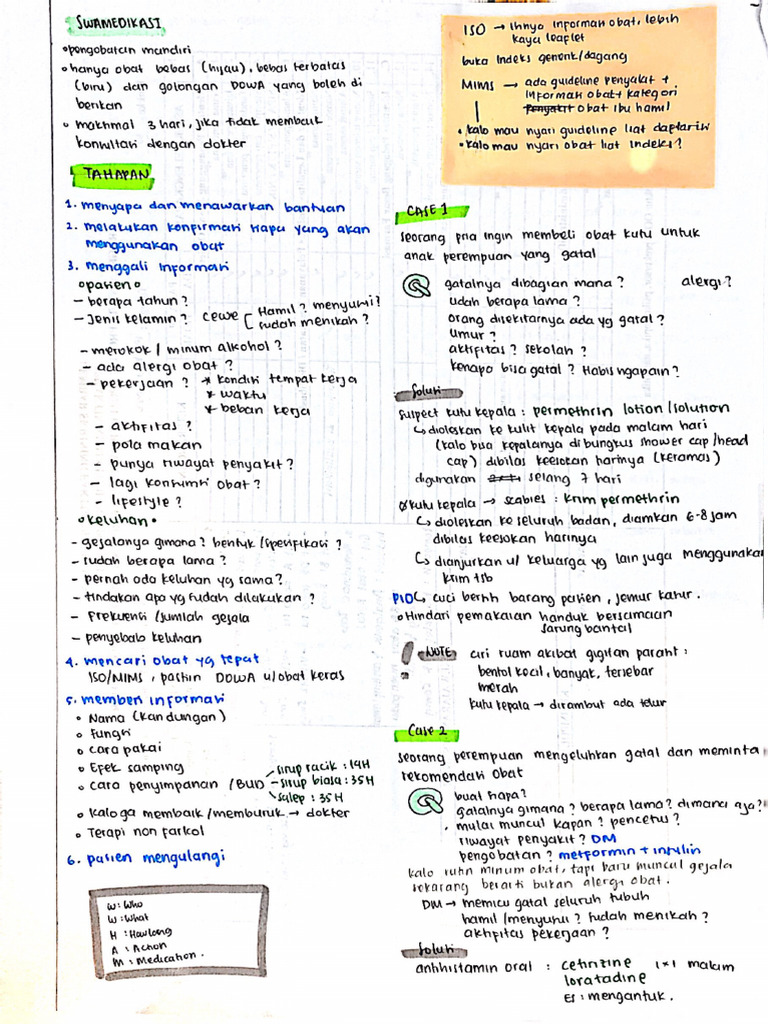 SWAMEDIKASI
• pengobatan mandiri
• hanya obat bebas (hijau), bebas terbatas
(biru) dan golongan DOWA yang boleh di
berikan
• maksimal 3 hari, jika tidak membaik
konsultasi dengan dokter
ISO → isinya informasi obat, lebih
kaya leaflet
buka indeks generik/dagang
MIMS → ada guideline penyakit +
informasi obat + kategori
obat ibu hamil
• kalo mau nyari guideline liat daftar isi
• kalo mau nyari obat liat indeks?
TAHAPAN
1. menyapa dan menawarkan bantuan
2. melakukan konfirmasi siapa yang akan
menggunakan obat
3. menggali informasi
• pasien •
- berapa tahun?
- jenis kelamin? cewe [ Hamil? menyusui?
sudah menikah?
- merokok / minum alkohol?
- ada alergi obat?
- pekerjaan? * kondisi tempat kerja
* waktu
* beban kerja
- aktifitas?
- pola makan
- punya riwayat penyakit?
- lagi konsumsi obat?
- lifestyle?
• keluhan •
- gejalanya gimana? bentuk / spesifikasi?
- sudah berapa lama?
- pernah ada keluhan yg sama?
- tindakan apa yg sudah dilakukan?
- frekuensi / jumlah gejala
- penyebab keluhan
4. mencari obat yg tepat
ISO/MIMS, pastiin DOWA u/ obat keras
5. memberi informasi
• Nama (kandungan)
• fungsi
• cara pakai
• Efek samping
• Cara penyimpanan / BUD
sirup racik : 14H
sirup biasa : 35H
salep : 35H
• kalo ga membaik / memburuk → dokter
• Terapi non farkol
6. pasien mengulangi
W : Who
W : What
H : How long
A : Action
M : Medication.
CASE 1
seorang pria ingin membeli obat kutu untuk
anak perempuan yang gatal
Q gatalnya dibagian mana? alergi?
udah berapa lama?
orang disekitarnya ada yg gatal?
umur?
aktifitas? sekolah?
kenapa bisa gatal? Habis ngapain?
Solusi
suspect kutu kepala : permethrin lotion / solution
↳ dioleskan ke kulit kepala pada malam hari
(kalo bisa kepalanya di bungkus shower cap / head
cap) dibilas keesokan harinya (keramas)
digunakan selang 7 hari
Ø kutu kepala → scabies : krim permethrin
↳ dioleskan ke seluruh badan, diamkan 6-8 jam
dibilas keesokan harinya
↳ dianjurkan u/ keluarga yg lain juga menggunakan
krim tsb
PIO ↳ cuci bersih barang pasien, jemur kasur.
• Hindari pemakaian handuk bersamaan
sarung bantal
! NOTE ciri ruam akibat gigitan parasit :
bentol kecil, banyak, tersebar
merah
kutu kepala → dirambut ada telur
Case 2
seorang perempuan mengeluhkan gatal dan meminta
rekomendasi obat
Q buat siapa?
gatalnya gimana? berapa lama? dimana aja?
mulai muncul kapan? pencetus?
riwayat penyakit? DM
pengobatan? metformin + insulin
kalo rutin minum obat, tapi baru muncul gejala
sekarang berarti bukan alergi obat.
DM → memicu gatal seluruh tubuh
hamil / menyusui? sudah menikah?
aktifitas pekerjaan?
Solusi
antihistamin oral : cetirizine 1x1 malam
loratadine
ES : mengantuk.